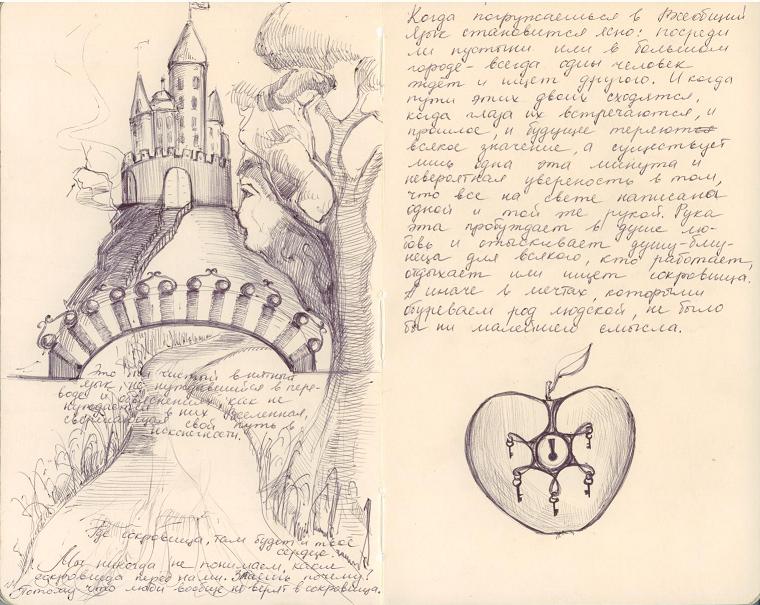 Это был чистый внятный
язык, не нуждавшийся в пере-
воде и объяснениях, как не
нуждается в них Вселенная,
свершающая свой путь в
бесконечности.
Где сокровища, там будет и твоё
сердце.
Мы никогда не понимаем, какие
сокровища перед нами. Знаешь почему?
Потому что люди вообще не верят в сокровища.
Когда погружаешься в Всеобщий
Язык становится ясно: посреди
ли пустыни или в большом
городе - всегда один человек
ждёт и ищет другого. И когда
пути этих двоих сходятся,
когда глаза их встречаются, и
прошлое, и будущее теряют
всякое значение, а существует
лишь одна эта минута и
невероятная уверенность в том,
что все на свете написана
одной и той же рукой. Рука
эта пробуждает в душе лю-
бовь и отыскивает душу-близ-
неца для всякого, кто работает,
отдыхает или ищет сокровища.
А иначе в мечтах, которыми
обуреваем род людской, не было
бы ни малейшего смысла.